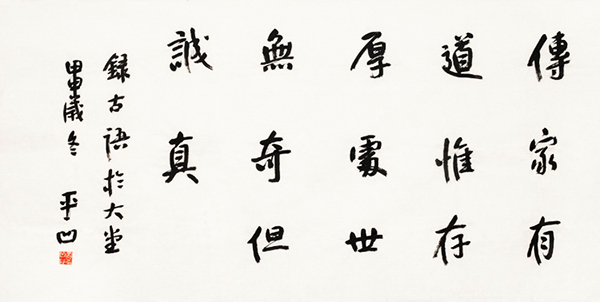 傳家有
道惟存
厚處世
無奇但
誠真
録古語於大堂
甲申歲冬 平凹